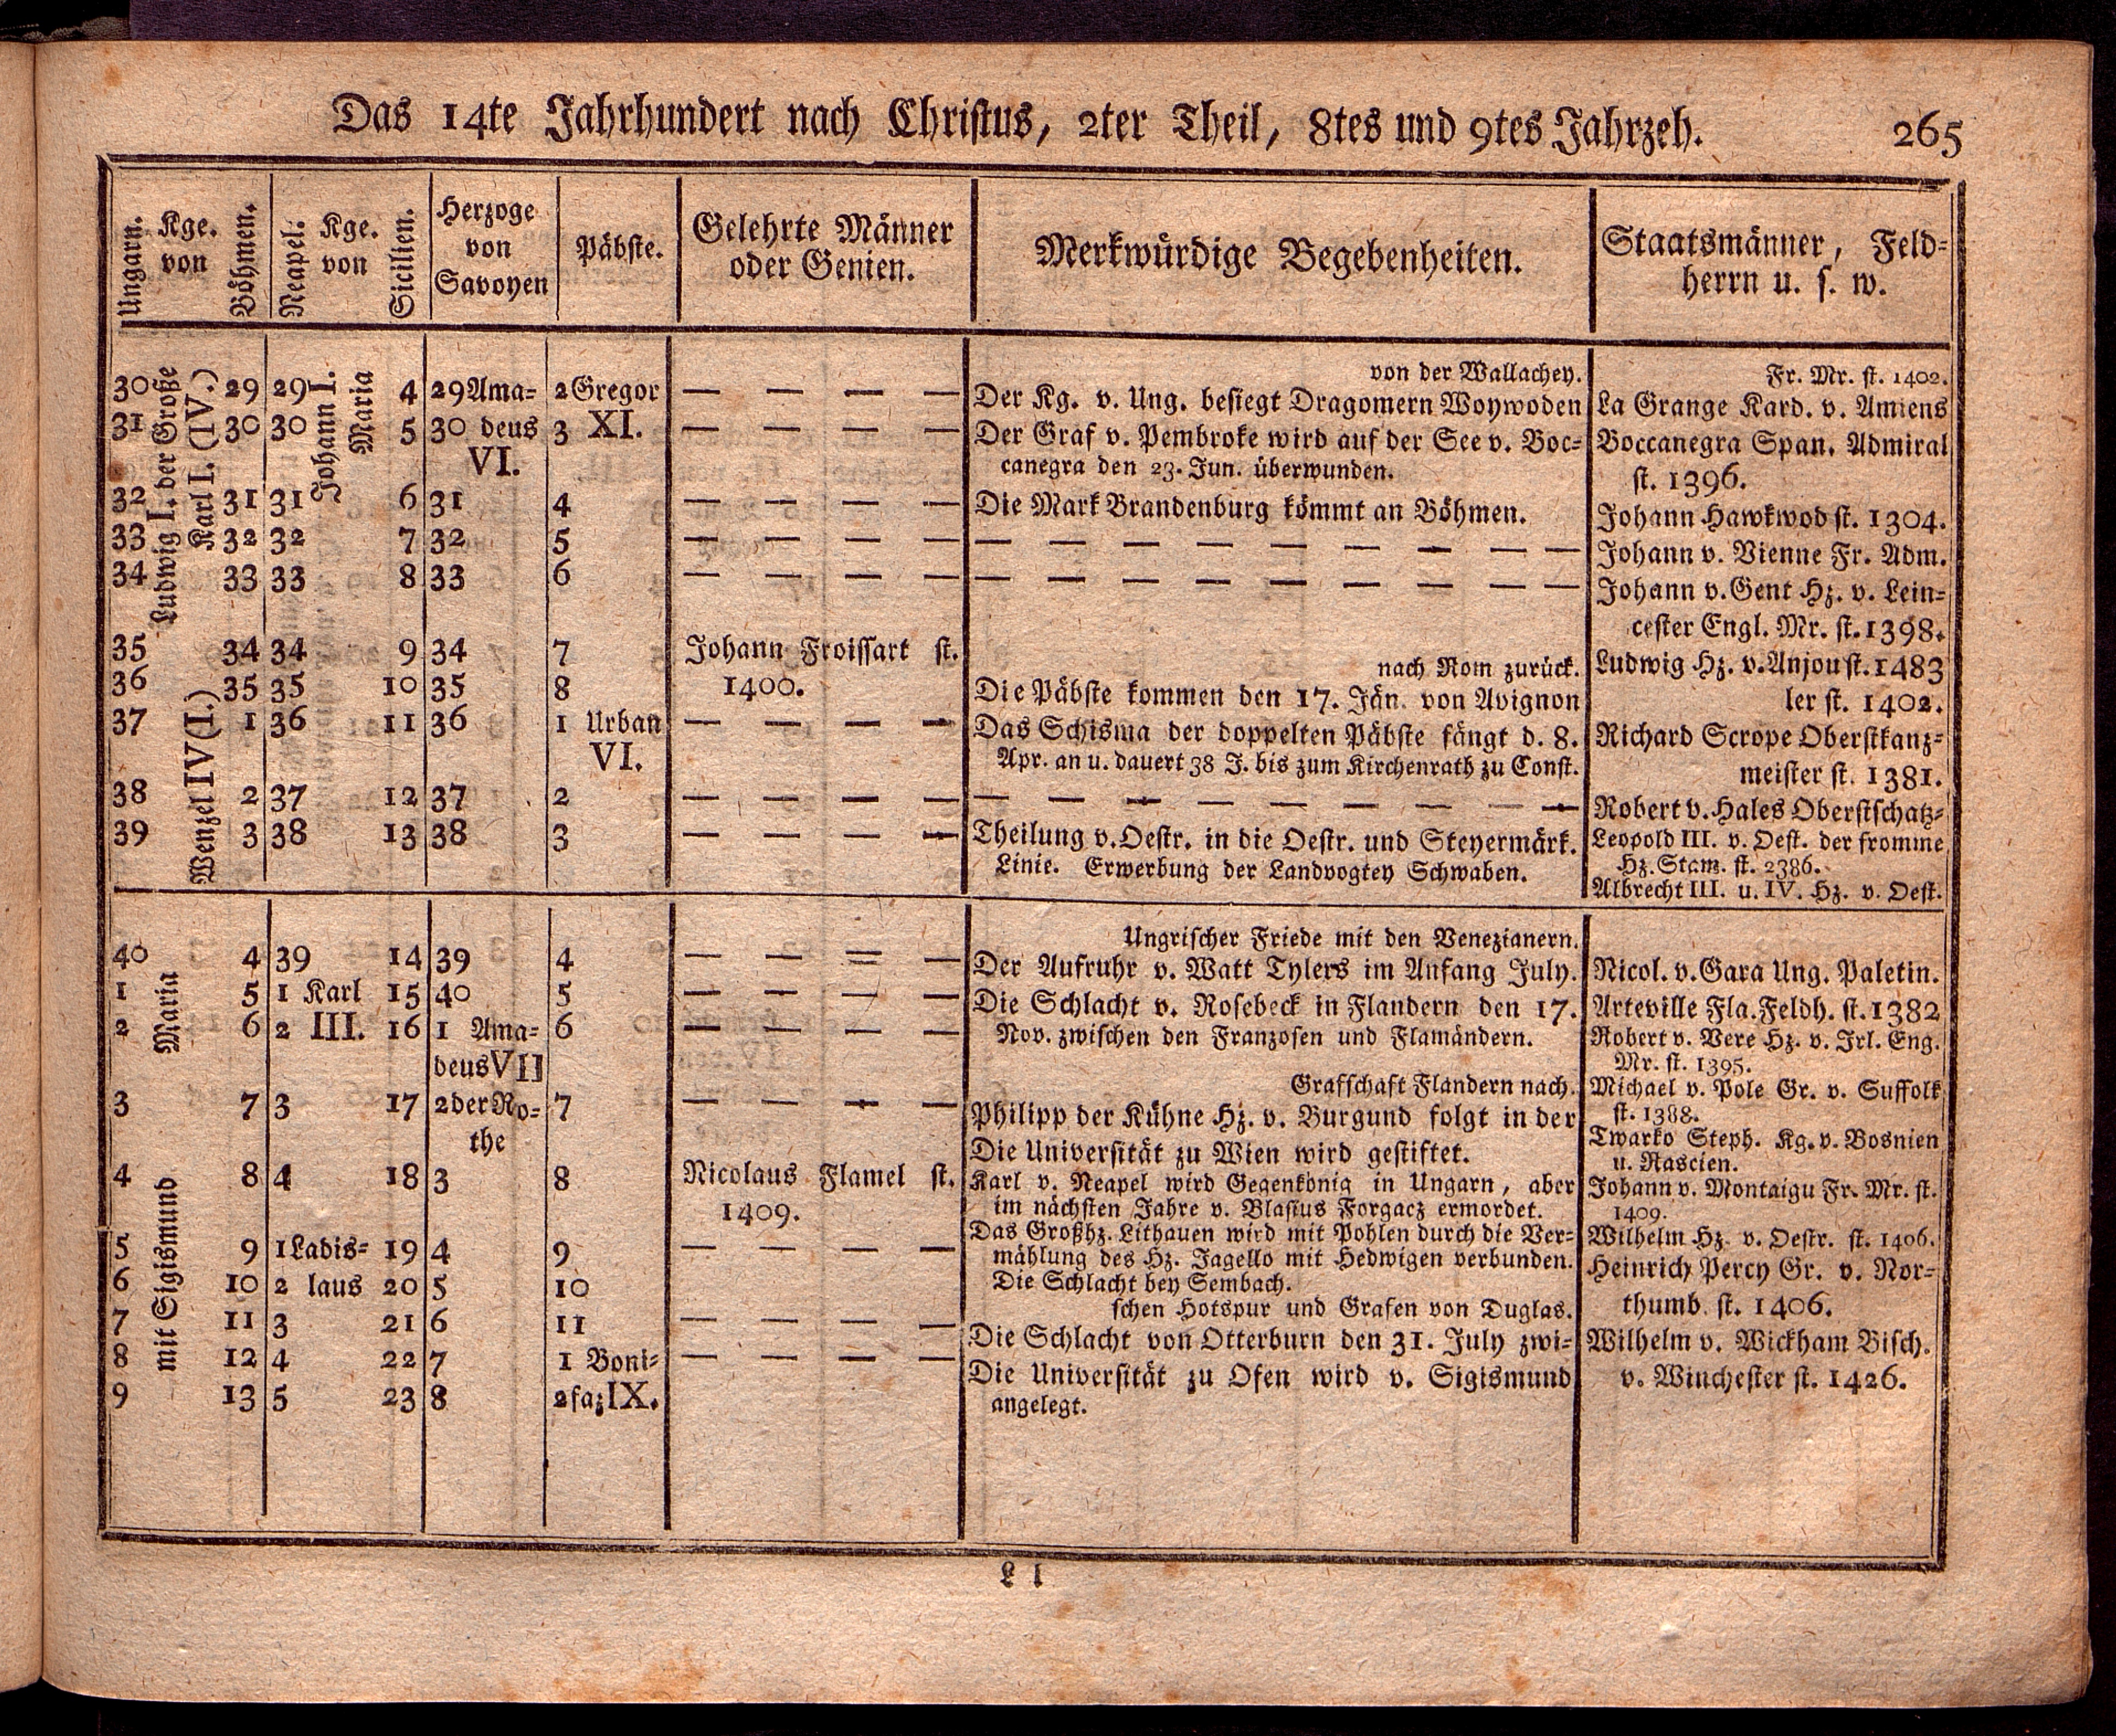 Das 14te Jahrhundert nach Christus, 2ter Theil, 8tes und 9tes Jahrzeh. 265
Ungarn. Kge. von Böhmen. Neapel. Kge. von Sicilien. Herzoge von Savoyen Päbste. Gelehrte Männer oder Genien. Merkwürdige Begebenheiten. Staatsmänner, Feld-
herrn u. s. w.
Ludwig I. der Große
Karl I. (IV.)
Johann I.
Maria
Wenzel IV (I.)
von der Wallachey. Fr. Mr. st. 1402.
30 29 29 4 29 Ama- 2 Gregor — — — — Der Kg. v. Ung. besiegt Dragomern Woywoden La Grange Kard. v. Amiens
31 30 30 5 30 deus 3 XI. — — — — Der Graf v. Pembroke wird auf der See v. Boc- Boccanegra Span. Admiral
VI. canegra den 23. Jun. überwunden. st. 1396.
32 31 31 6 31 4 — — — — Die Mark Brandenburg kömmt an Böhmen. Johann Hawkwod st. 1304.
33 32 32 7 32 5 — — — — — — — — — — — — — Johann v. Vienne Fr. Adm.
34 33 33 8 33 6 — — — — — — — — — — — — — Johann v. Gent Hz. v. Lein-
cester Engl. Mr. st. 1398.
35 34 34 9 34 7 Johann Froissart st. nach Rom zurück. Ludwig Hz. v. Anjou st. 1483
36 35 35 10 35 8 1400. Die Päbste kommen den 17. Jän. von Avignon ler st. 1402.
37 1 36 11 36 1 Urban — — — — Das Schisma der doppelten Päbste fängt d. 8. Richard Scrope Oberstkanz-
VI. Apr. an u. dauert 38 J. bis zum Kirchenrath zu Const. meister st. 1381.
38 2 37 12 37 2 — — — — — — — — — — — — — Robert v. Hales Oberstschatz-
39 3 38 13 38 3 — — — — Theilung v. Oestr. in die Oestr. und Steyermärk. Leopold III. v. Oest. der fromme
Linie. Erwerbung der Landvogtey Schwaben. Hz. Stam. st. 2386.
Albrecht III. u. IV. Hz. v. Oest.
Maria
mit Sigismund
Ungrischer Friede mit den Venezianern.
40 4 39 14 39 4 — — = — Der Aufruhr v. Watt Tylers im Anfang July. Nicol. v. Gara Ung. Paletin.
1 5 1 Karl 15 40 5 — — — — Die Schlacht v. Rosebeck in Flandern den 17. Arteville Fla. Feldh. st. 1382
2 6 2 III. 16 1 Ama- 6 — — — — Nov. zwischen den Franzosen und Flamändern. Robert v. Vere Hz. v. Irl. Eng.
deus VII Mr. st. 1395.
Grafschaft Flandern nach. Michael v. Pole Gr. v. Suffolk
3 7 3 17 2 der Ro- 7 — — — — Philipp der Kühne Hz. v. Burgund folgt in der st. 1388.
the Die Universität zu Wien wird gestiftet. Twarko Steph. Kg. v. Bosnien
u. Rascien.
4 8 4 18 3 8 Nicolaus Flamel st. Karl v. Neapel wird Gegenkönig in Ungarn, aber Johann v. Montaigu Fr. Mr. st.
1409. im nächsten Jahre v. Blasius Forgacz ermordet. 1409.
Das Großhz. Lithauen wird mit Pohlen durch die Ver- Wilhelm Hz. v. Oestr. st. 1406.
5 9 1 Ladis- 19 4 9 — — — — mählung des Hz. Jagello mit Hedwigen verbunden. Heinrich Percy Gr. v. Nor-
6 10 2 laus 20 5 10 Die Schlacht bey Sembach. thumb. st. 1406.
schen Hotspur und Grafen von Duglas.
7 11 3 21 6 11 — — — — Die Schlacht von Otterburn den 31. July zwi- Wilhelm v. Wickham Bisch.
8 12 4 22 7 1 Boni- — — — — Die Universität zu Ofen wird v. Sigismund v. Winchester st. 1426.
9 13 5 23 8 2 faz IX. angelegt.
L l